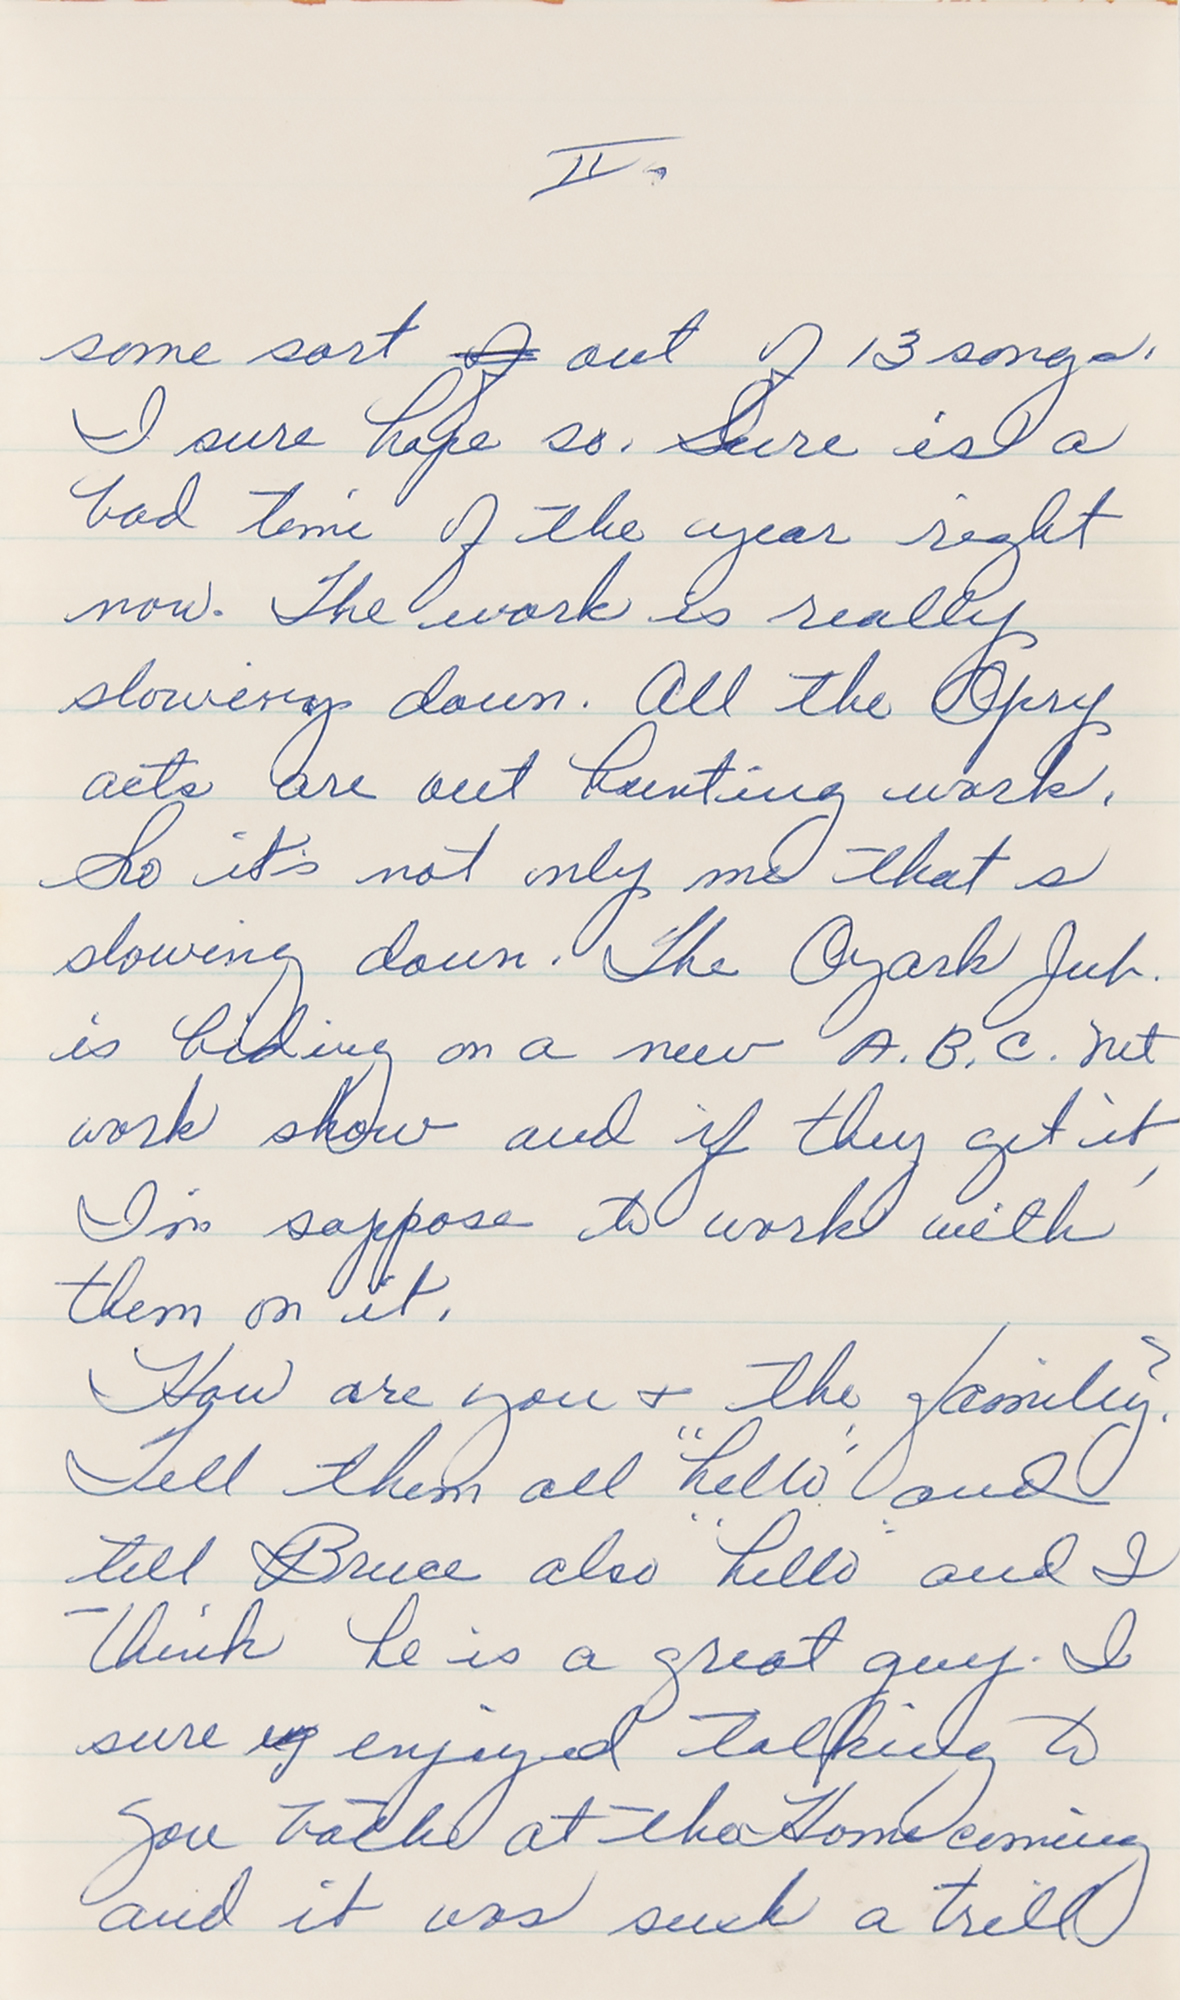 II.
some sort of out of 13 songs.
I sure hope so. Sure is a
bad time of the year right
now. The work is really
slowing down. All the Opry
acts are out hunting work.
So it's not only me that s
slowing down. The Ozark Jub.
is biding on a new A.B.C. net
work show and if they get it,
I'm suppose to work with
them on it.
How are you + the family?
Tell them all "hello", and
tell Bruce also "hello" and I
think he is a great guy. I
sure enjoyed talking to
you bothe at the Homecoming
and it was such a trill